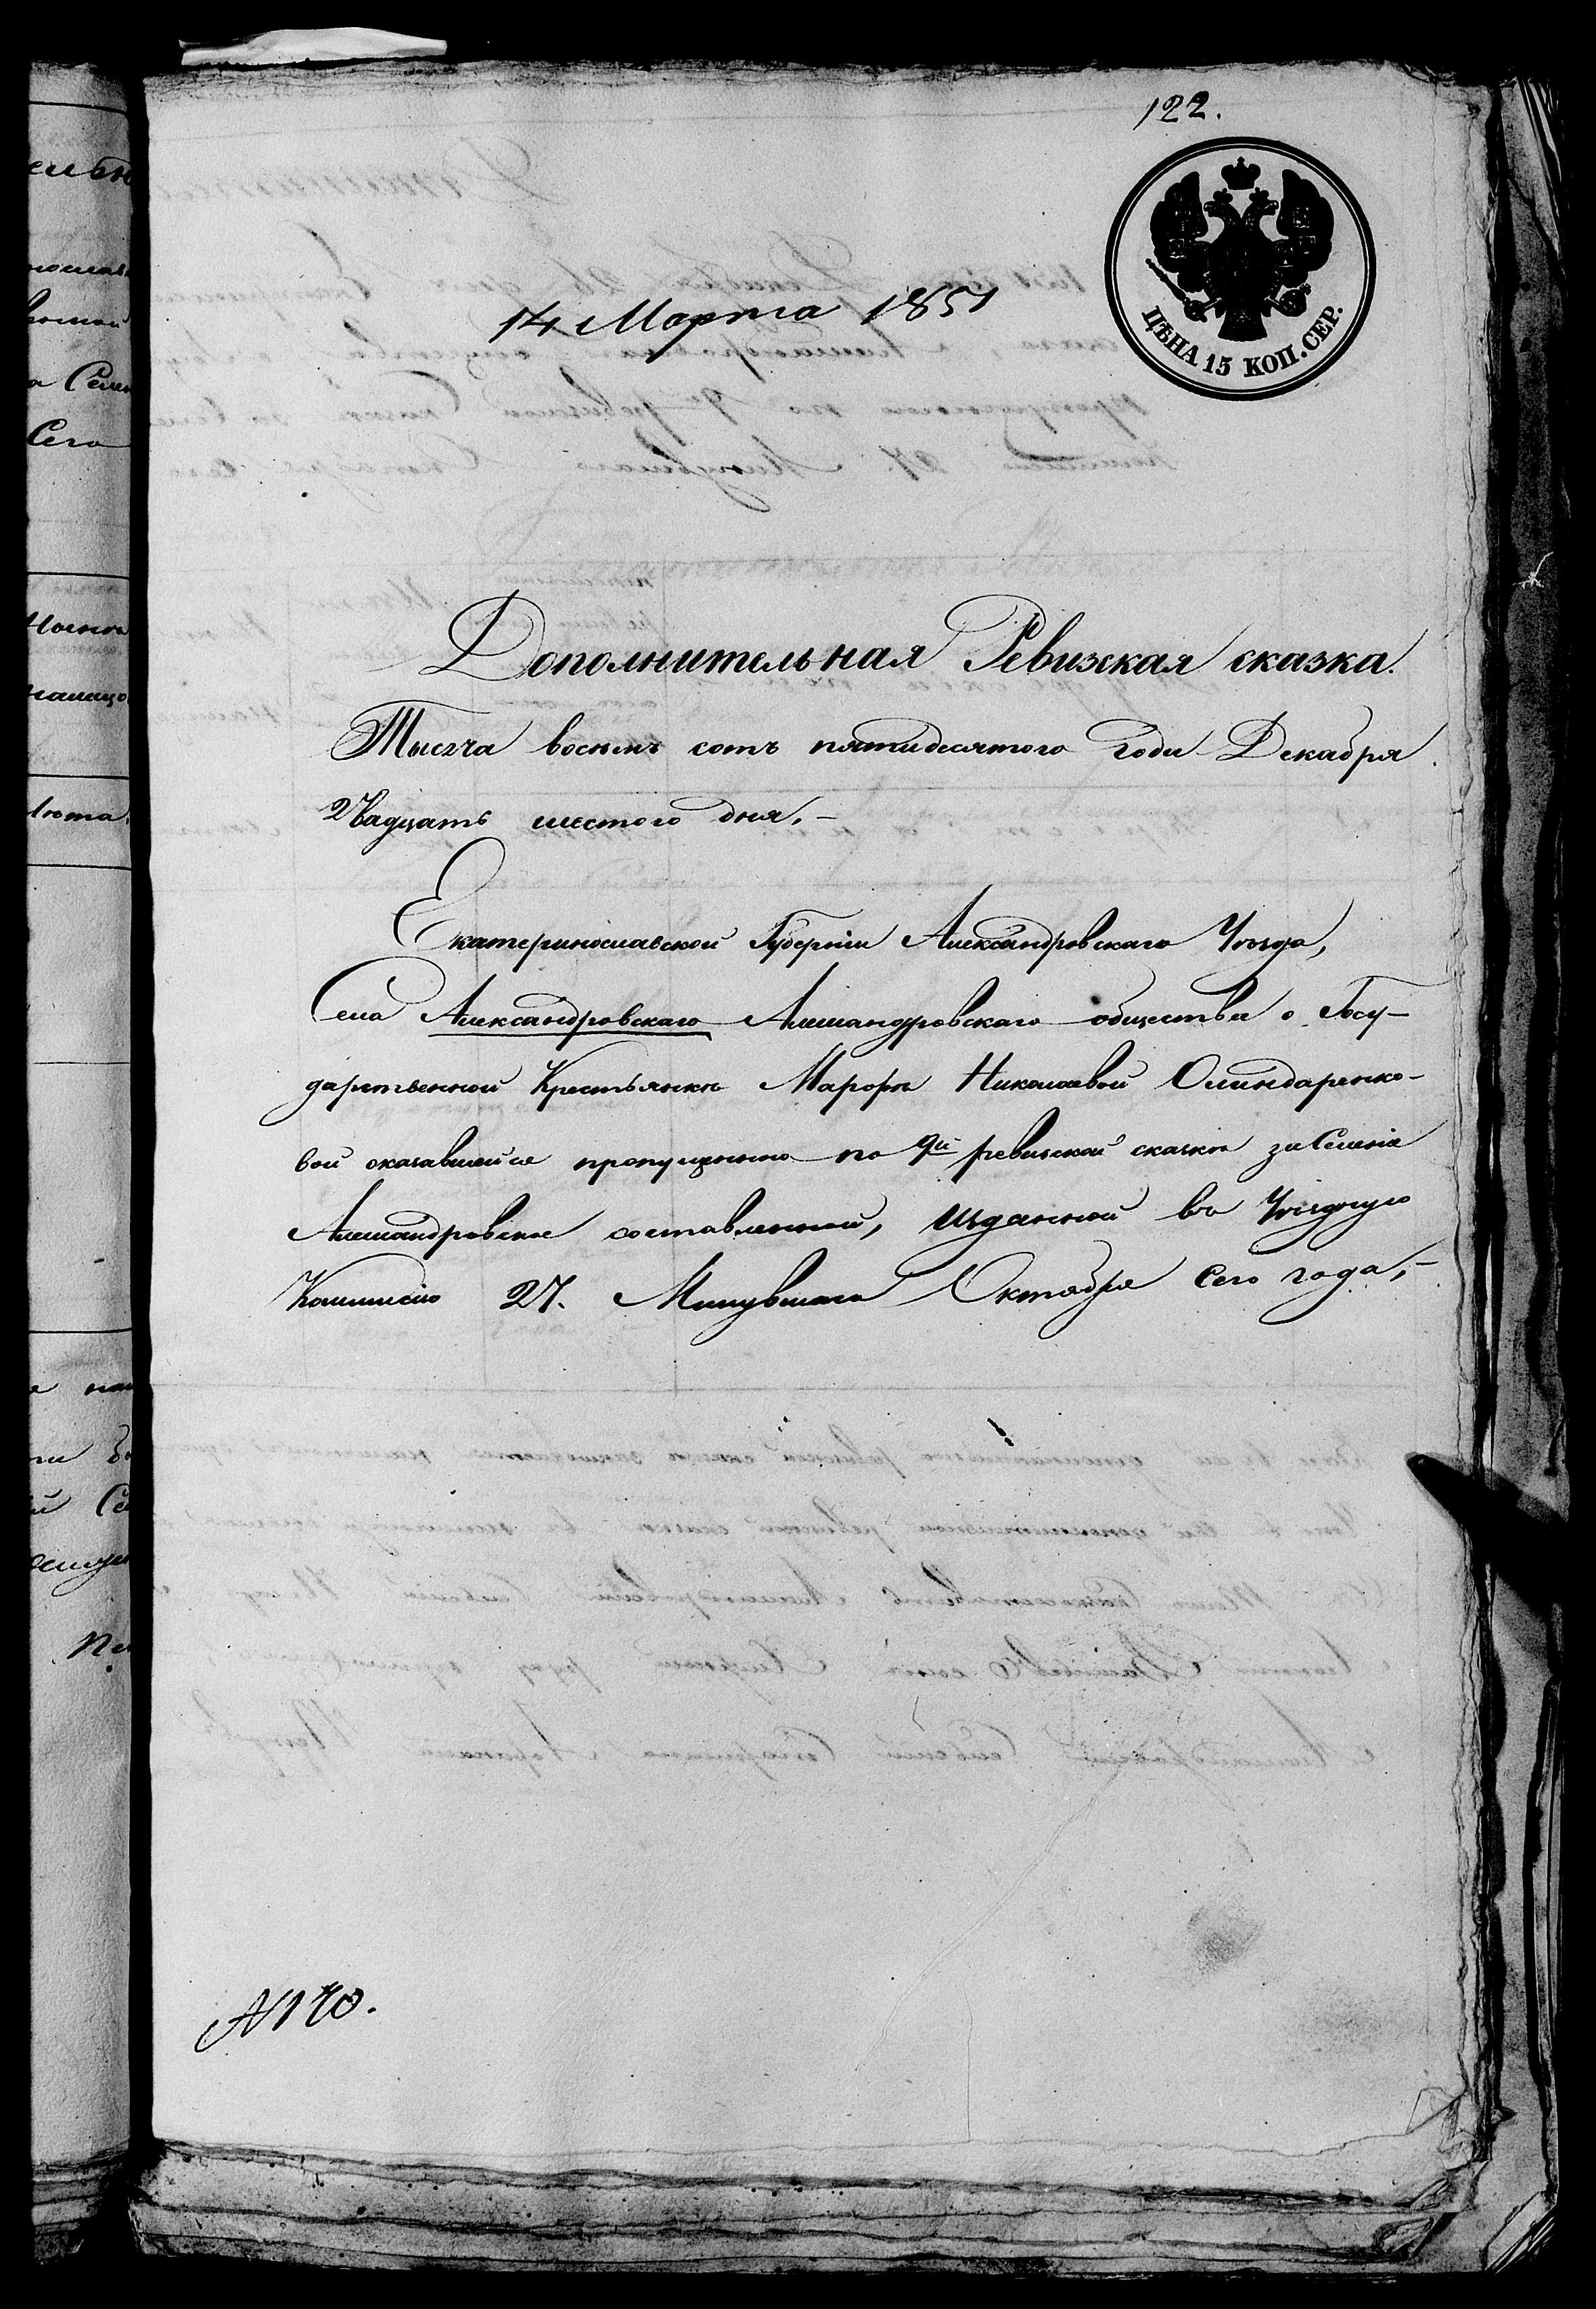 122.
ЦѢНА 15 КОП. СЕР.
14 Марта 1851
Дополнительная Ревизская сказка.
Тысяча восемь сотъ пятидесятого года Декабря
двадцать шестого дня.—
Екатеринославской Губерніи Александровскаго Уѣзда,
Села Александровскаго Александровскаго общества о Госу-
дарственной Крестьянкѣ Марѳѣ Николаевой Олиндаренко-
вой оказавшейся пропущенною по 9й ревизской сказкѣ за Селеніе
Александровское составленной, изданной въ Уѣздную
Коммисію 27. Минувшаго Октября сего года,—
N 170.